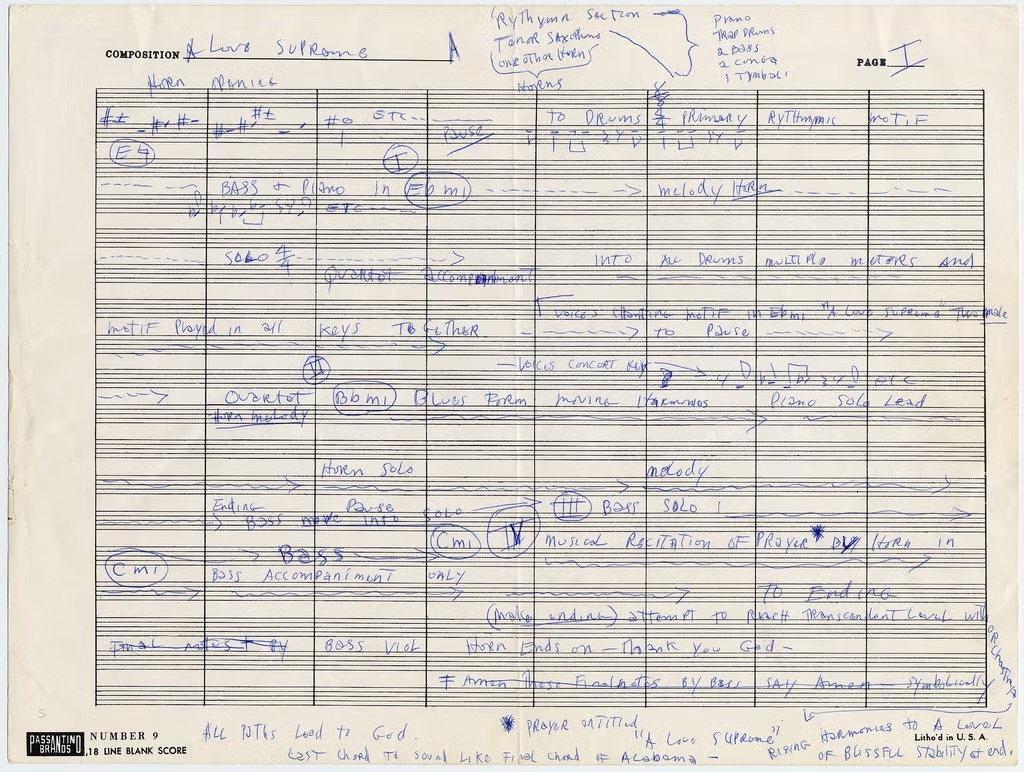 "Rythymn Section
Tenor Saxophone
one other Horn
Horns
Piano
TRAP DRUMS
2 BASS
2 CONGA
1 Tymbali
COMPOSITION A Love Supreme A
PAGE I
Horn opening
ETC
PAUSE
TO DRUMS PRIMARY RYTHMNIC MOTIF
E♮
I
BASS + PIANO IN Ebmi melody Horn
ETC
SOLO 4/4 INTO ALL DRUMS MULTIPLE METERS AND
Quartet Accompaniment
Voices Chanting Motif in Ebmi "A Love Supreme" Two male
motif Played in all Keys TOGETHER TO Pause
II
VOICES CONCERT KEY ETC
Quartet Bbmi Blues Form moving Harmonies Piano Solo Lead
Horn melody
Horn Solo melody
Ending Pause SOLO III BASS SOLO 1
BASS move into
Cmi IV MUSICAL RECITATION OF PRAYER * BY HORN in
BASS
Cmi BASS ACCOMPANIMENT ONLY
TO Ending
(make ending) attempt to Reach Transcendent Level with
Final notes + BY BASS VIOL Horn Ends on - Thank you God -
Amen These Final notes BY BASS SAY Amen - symbolically
OR
ALL Paths Lead to God.
Last Chord to sound Like Final Chord of Alabama -
* PRAYER entitled "A Love SUPREME"
RISING Harmonies to A Level
OF BLISSFUL Stability at end.
5
PASSANTINO BRANDS
NUMBER 9
18 LINE BLANK SCORE
Litho'd in U. S. A.